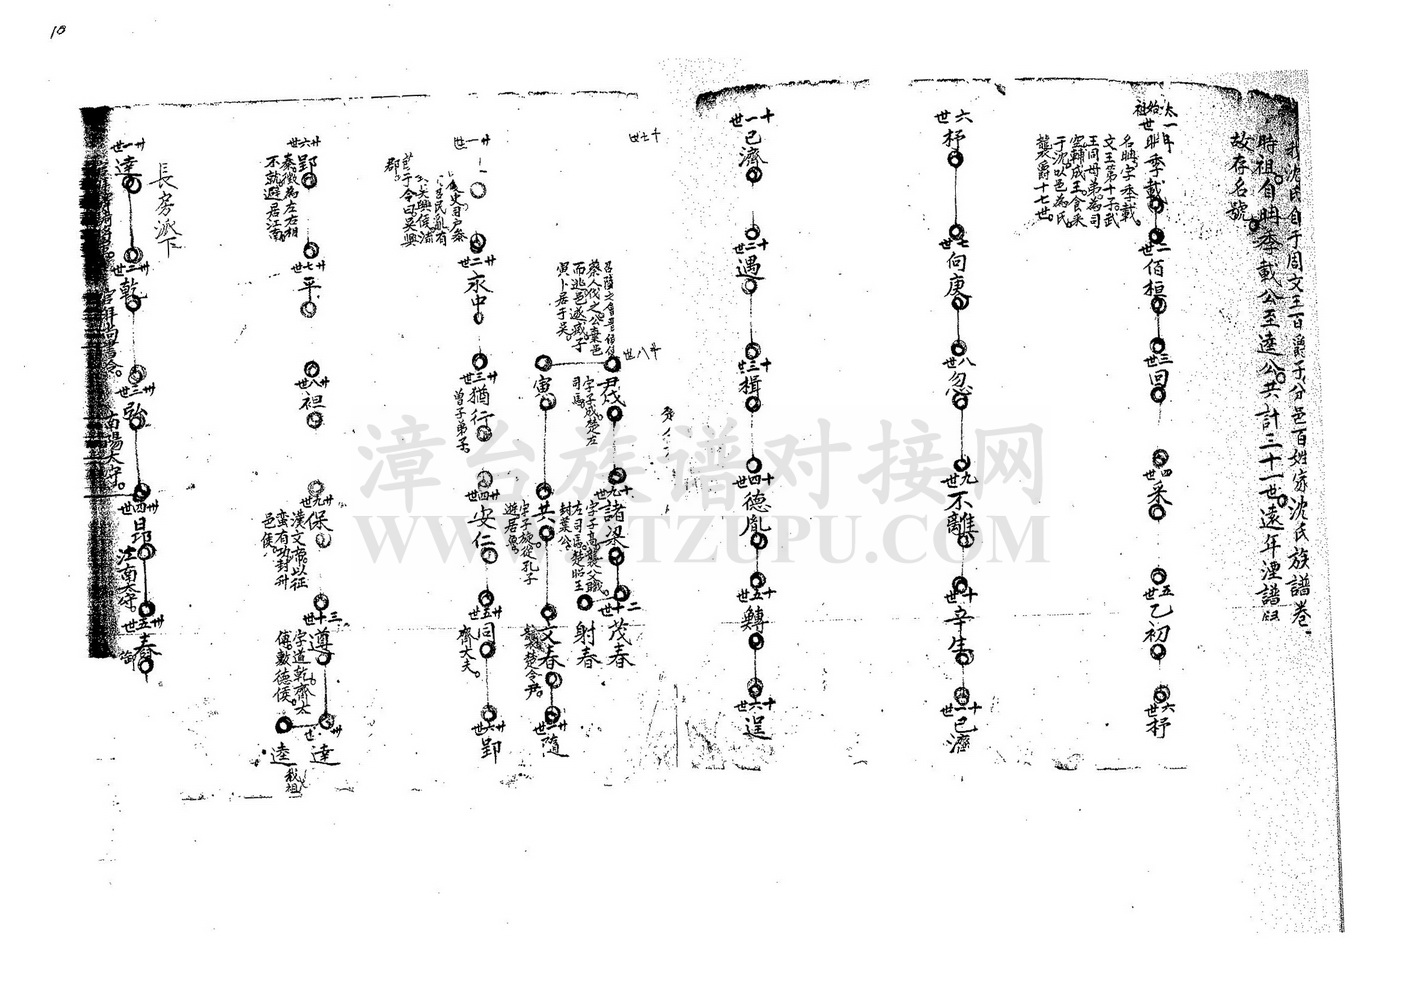 10
我沈氏自于周文王百爵于分邑百姓家沈氏族譜卷
時祖自聃季載公至達公共計三十一世遠年湮譜
故存名號
太始祖
一世 聃季載
名聃字季載
文王第十子武
王同母弟為司
空輔成王食采
于沈以邑為氏
襲爵十七世
二世 佰桓
三世 回
四世 采
五世 乙初
六世 杼
六世 杼
七世 向庚
八世 忽
九世 不離
十世 辛生
十一世 已濟
十一世 已濟
十二世 遇
十三世 楫
十四世 德胤
十五世 鱄
十六世 逞
十七世
召陵之會晋
蔡人伐之公棄邑
而逃邑遂咸子
寅卜居于吴
十八世
尹戌
字子成楚左
司馬
十九世 諸梁
字子高襲父職
左司馬楚昭王
封葉公
二十世 茂春
射春
寅
共
字子旋從孔子
遊居魯
文春
襲楚令尹
隨
廿一世
郡
廿二世 永中
廿三世 猶行
曾子弟子
廿四世 安仁
廿五世 同
齊大夫
廿六世 郢
廿六世 郢
秦徵為左右相
不就避居江南
廿七世 平
廿八世 祖
廿九世 保
漢文帝以征
蛮有功封升
邑侯
三十世 遵
字道乾齊太
傅敷德侯
達
逵
我祖
長房派下
卅一世 達
卅二世 乾
官拜尚書令
卅三世 弘
南陽太守
卅四世 昂
江南太守
卅五世 春
御
漳台族谱对接网
WWW.ZTZUPU.COM